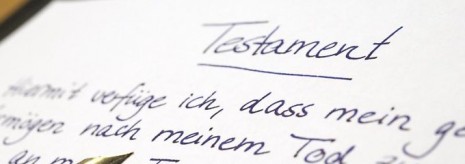 Testament
Hiermit verfüge ich, dass mein
nach meinem Tod
an